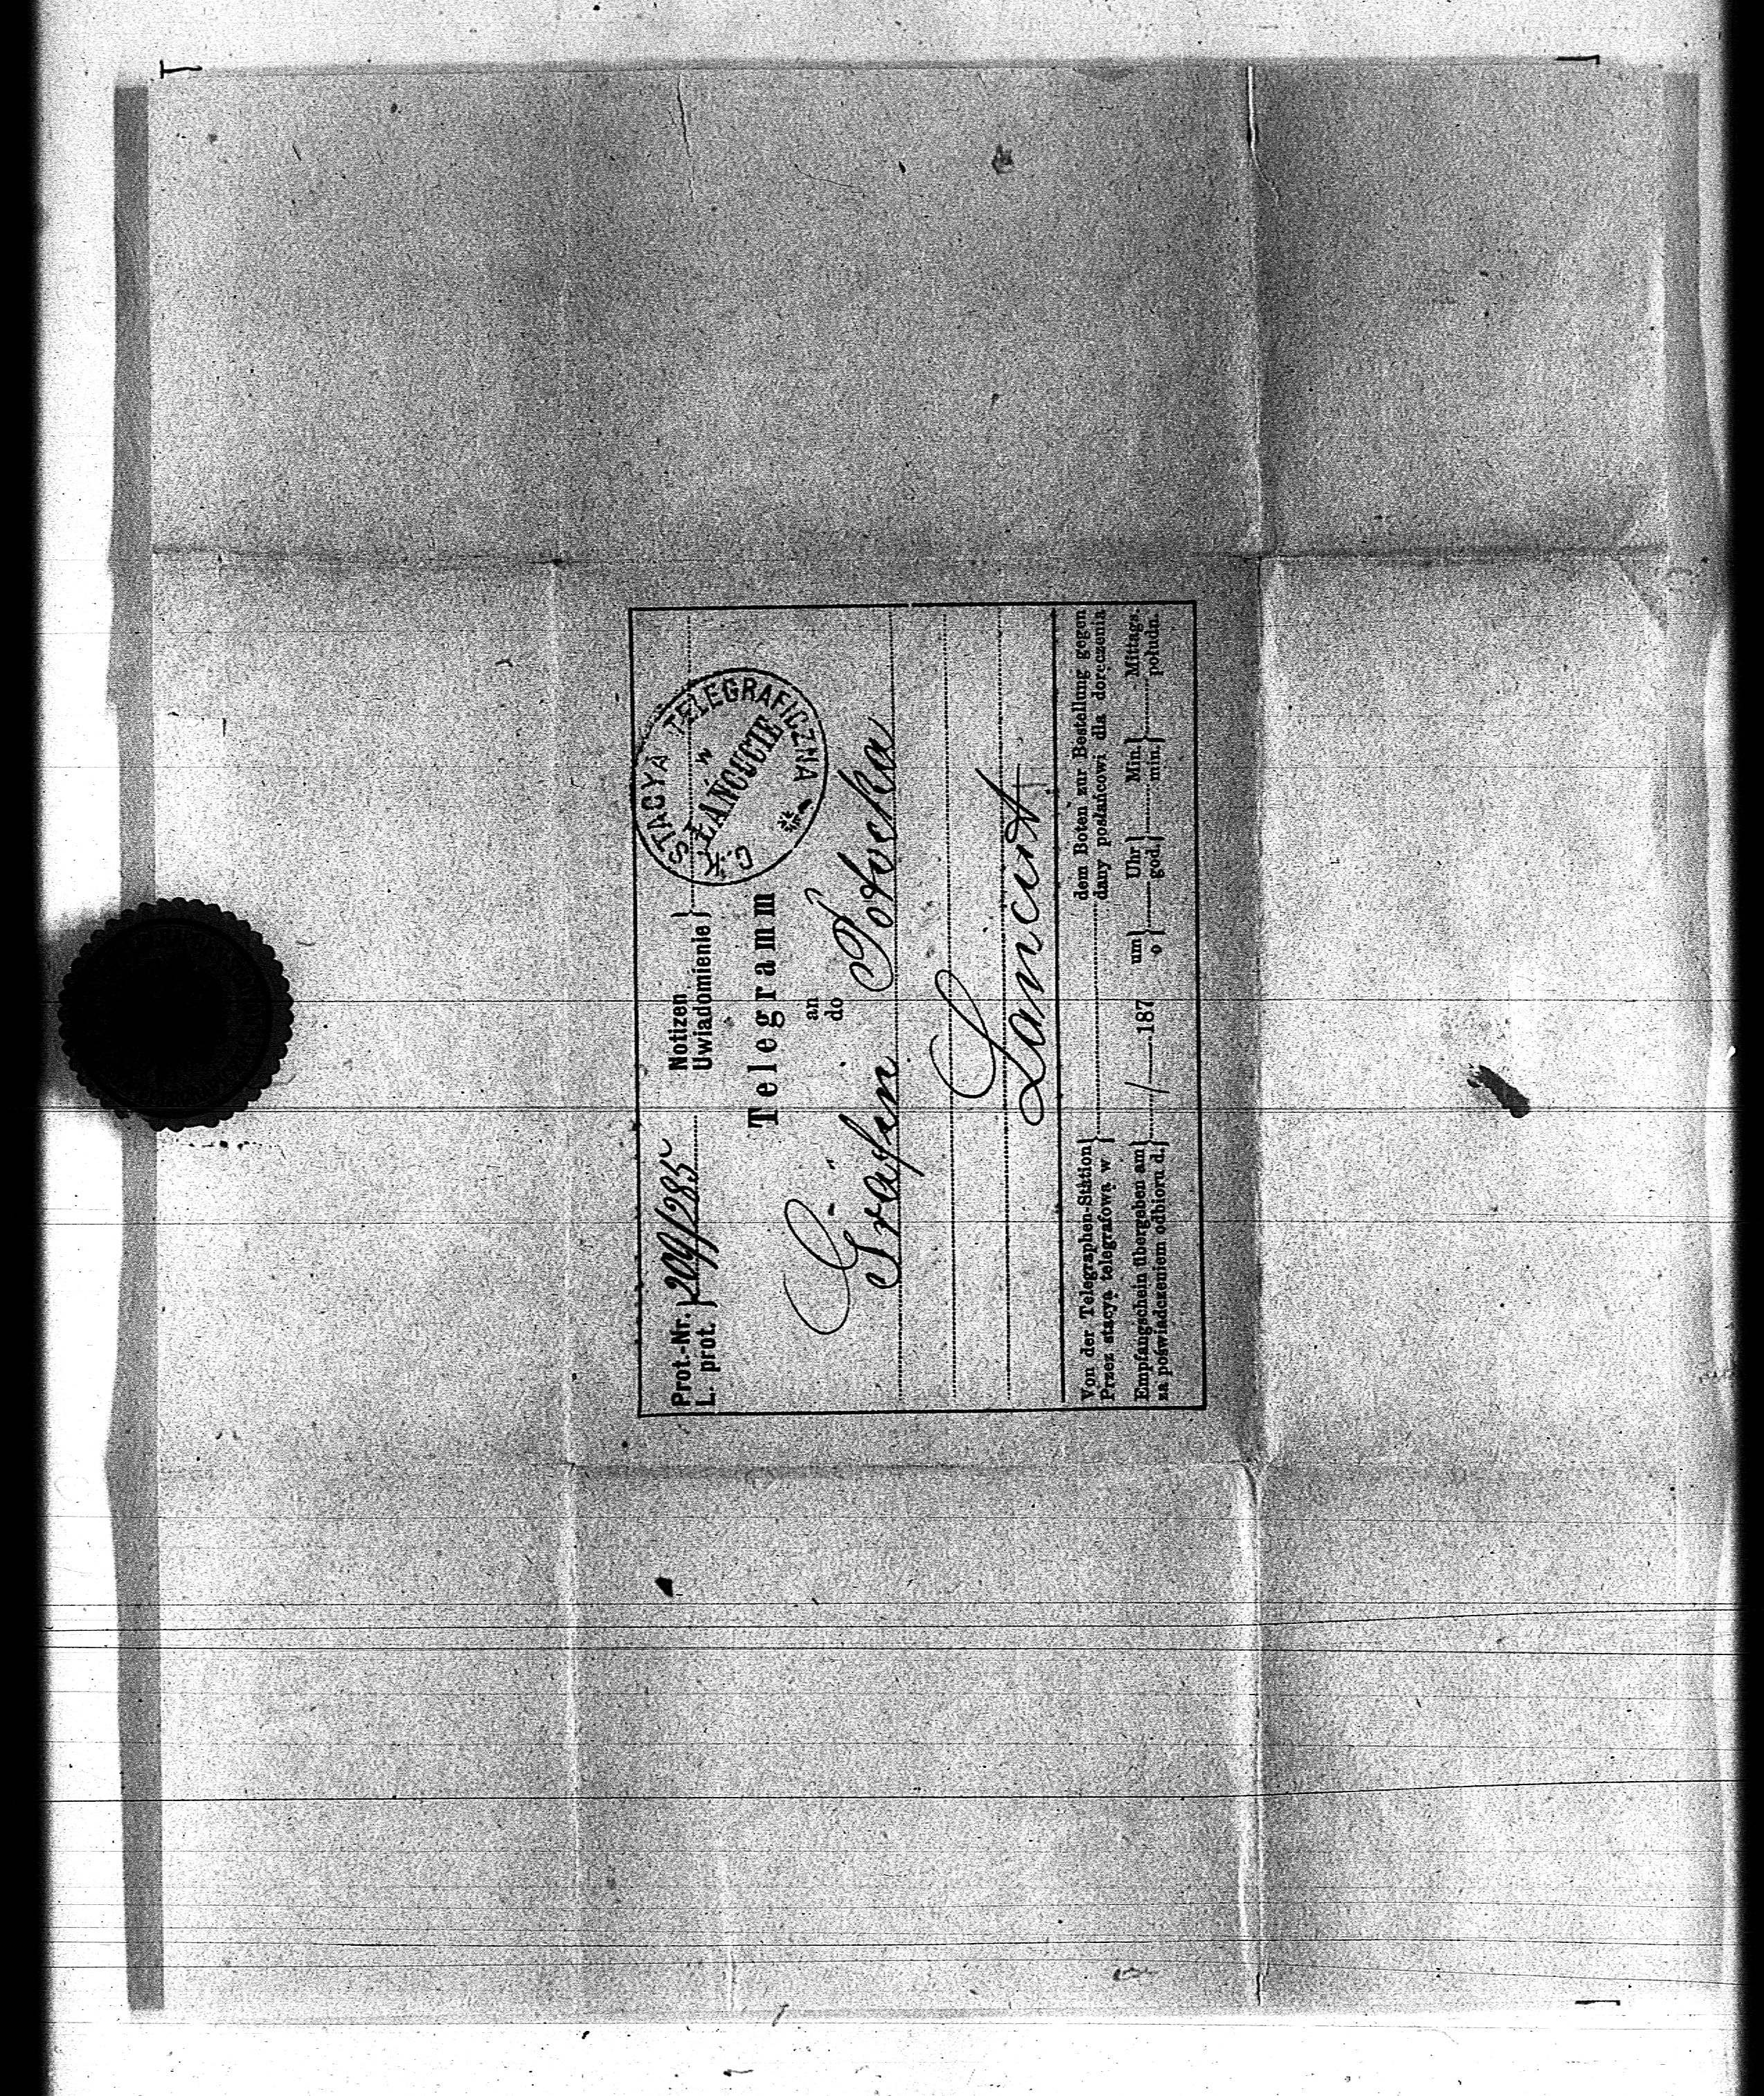 Prot.-Nr. } 209/285 Notizen }
L. prot. } Uwiadomienie }
C. K. STACYA TELEGRAFICZNA
w
ŁAŃCUCIE
Telegramm
an
do
Gräfin Potocka
Lancut
Von der Telegraphen-Station } dem Boten zur Bestellung gegen
Przez stacyą telegrafową w } dany posłańcowi dla doręczenia
Empfangschein übergeben am } / 187 um } Uhr } Min. } Mittags.
za poświadczeniem odbioru d. } o } god. } min. } połudn.